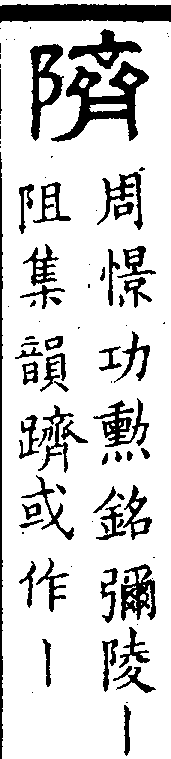 隮
周憬功勳銘彌陵丨
阻集韻躋或作丨